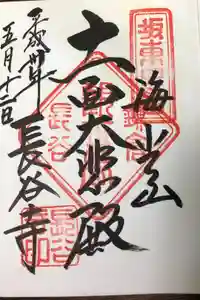 坂東
海光山
十一面大悲殿
長谷寺
平成卅年
五月十二日
長谷